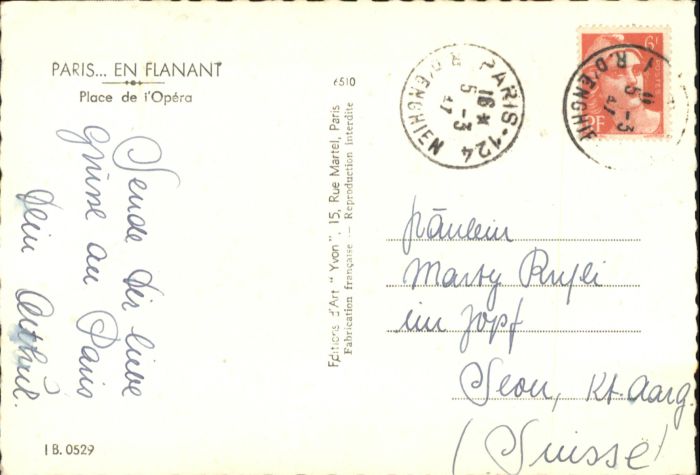 PARIS... EN FLANANT
Place de l'Opéra
Sende dir liebe
Grüsse au Paris
Dein Arthur.
I B. 0529
6510
Editions d'Art "Yvon", 15, Rue Martel, Paris
Fabrication française — Reproduction interdite
PARIS•124
16*
5-3
47
R. D'ENGHIEN
6F
POSTES
RF
R. D'ENGHIEN
5-3
47
Fräulein
Marty
im Zopf
Seon, Kt. Aarg.
(Suisse)